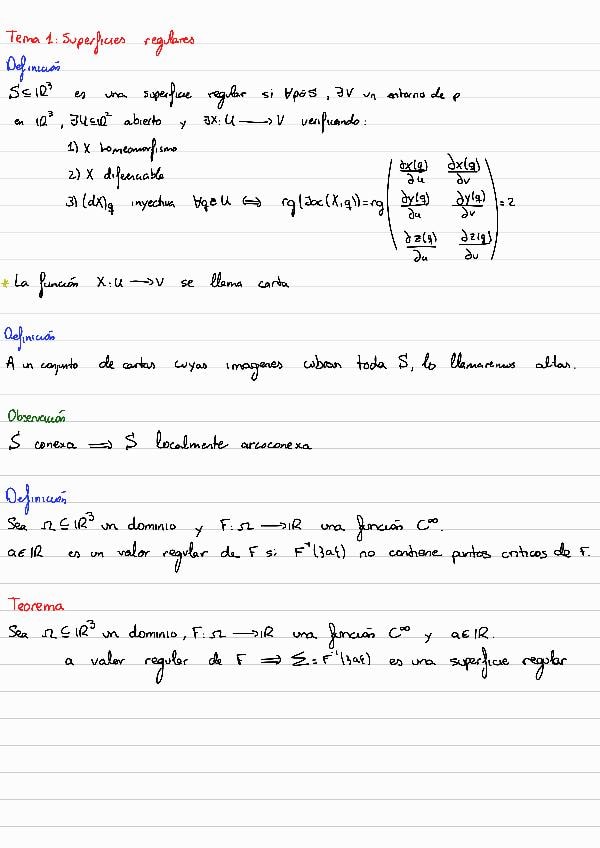 Tema 1: Superficies regulares
Definición
S⊆ℝ³ es una superficie regular si ∀p∈S, ∃V un entorno de p
en ℝ³, ∃U⊆ℝ² abierto y ∃X: U → V verificando:
1) X homeomorfismo
2) X diferenciable
3) (dX)q inyectiva ∀q∈U ⟺ rg(Jac(X,q)) = rg ( ∂x(q)/∂u ∂x(q)/∂v ; ∂y(q)/∂u ∂y(q)/∂v ; ∂z(q)/∂u ∂z(q)/∂v ) = 2
* La función X: U → V se llama carta
Definición
A un conjunto de cartas cuyas imagenes cubran toda S, lo llamaremos atlas.
Observación
S conexa ⟹ S localmente arcoconexa
Definición
Sea Ω⊆ℝ³ un dominio y F: Ω → ℝ una función C^∞.
a∈ℝ es un valor regular de F si F⁻¹({a}) no contiene puntos criticos de F.
Teorema
Sea Ω⊆ℝ³ un dominio, F: Ω → ℝ una función C^∞ y a∈ℝ.
a valor regular de F ⟹ Σ = F⁻¹({a}) es una superficie regular